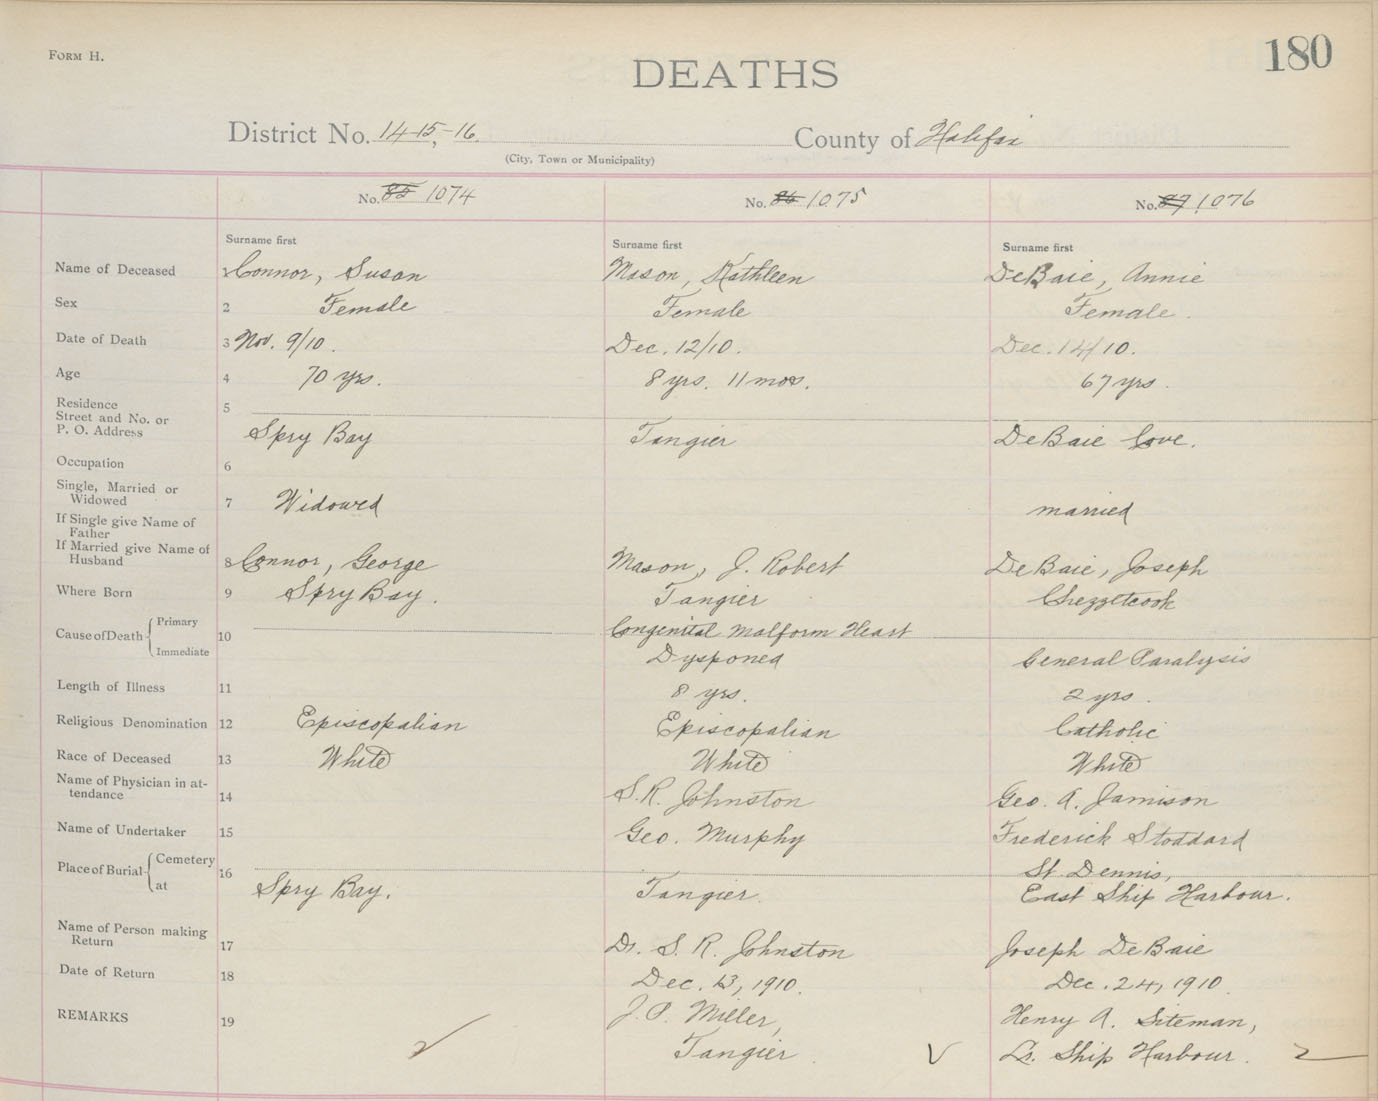 FORM H.
180
DEATHS
District No. 14-15,-16.
County of Halifax
(City, Town or Municipality)
No. 85 1074
No. 86 1075
No. 87 1076
Surname first
Surname first
Surname first
Name of Deceased 1 Connor, Susan
Mason, Kathleen
DeBaie, Annie
Sex 2 Female
Female
Female.
Date of Death 3 Nov. 9/10.
Dec. 12/10.
Dec. 14/10.
Age 4 70 yrs.
8 yrs. 11 mos.
67 yrs.
Residence
Street and No. or
P. O. Address 5
Spry Bay
Tangier
DeBaie Cove.
Occupation 6
Single, Married or
Widowed 7 Widowed
married
If Single give Name of
Father
If Married give Name of
Husband 8 Connor, George
Mason, J. Robert
DeBaie, Joseph
Where Born 9 Spry Bay.
Tangier
Chezzetcook
Cause of Death Primary
Immediate 10
Congenital Malform Heart
Dysponea
General Paralysis
Length of Illness 11
8 yrs.
2 yrs.
Religious Denomination 12 Episcopalian
Episcopalian
Catholic
Race of Deceased 13 White
White
White
Name of Physician in at-
tendance 14
S. R. Johnston
Geo. A. Jamison
Name of Undertaker 15
Geo. Murphy
Frederick Stoddard
Place of Burial Cemetery
at 16
Spry Bay.
Tangier.
St. Dennis,
East Ship Harbour.
Name of Person making
Return 17
Dr. S. R. Johnston
Joseph DeBaie
Date of Return 18
Dec. 13, 1910.
Dec. 24, 1910.
REMARKS 19
J. P. Miller,
Tangier.
Henry A. Siteman,
Lr. Ship Harbour.